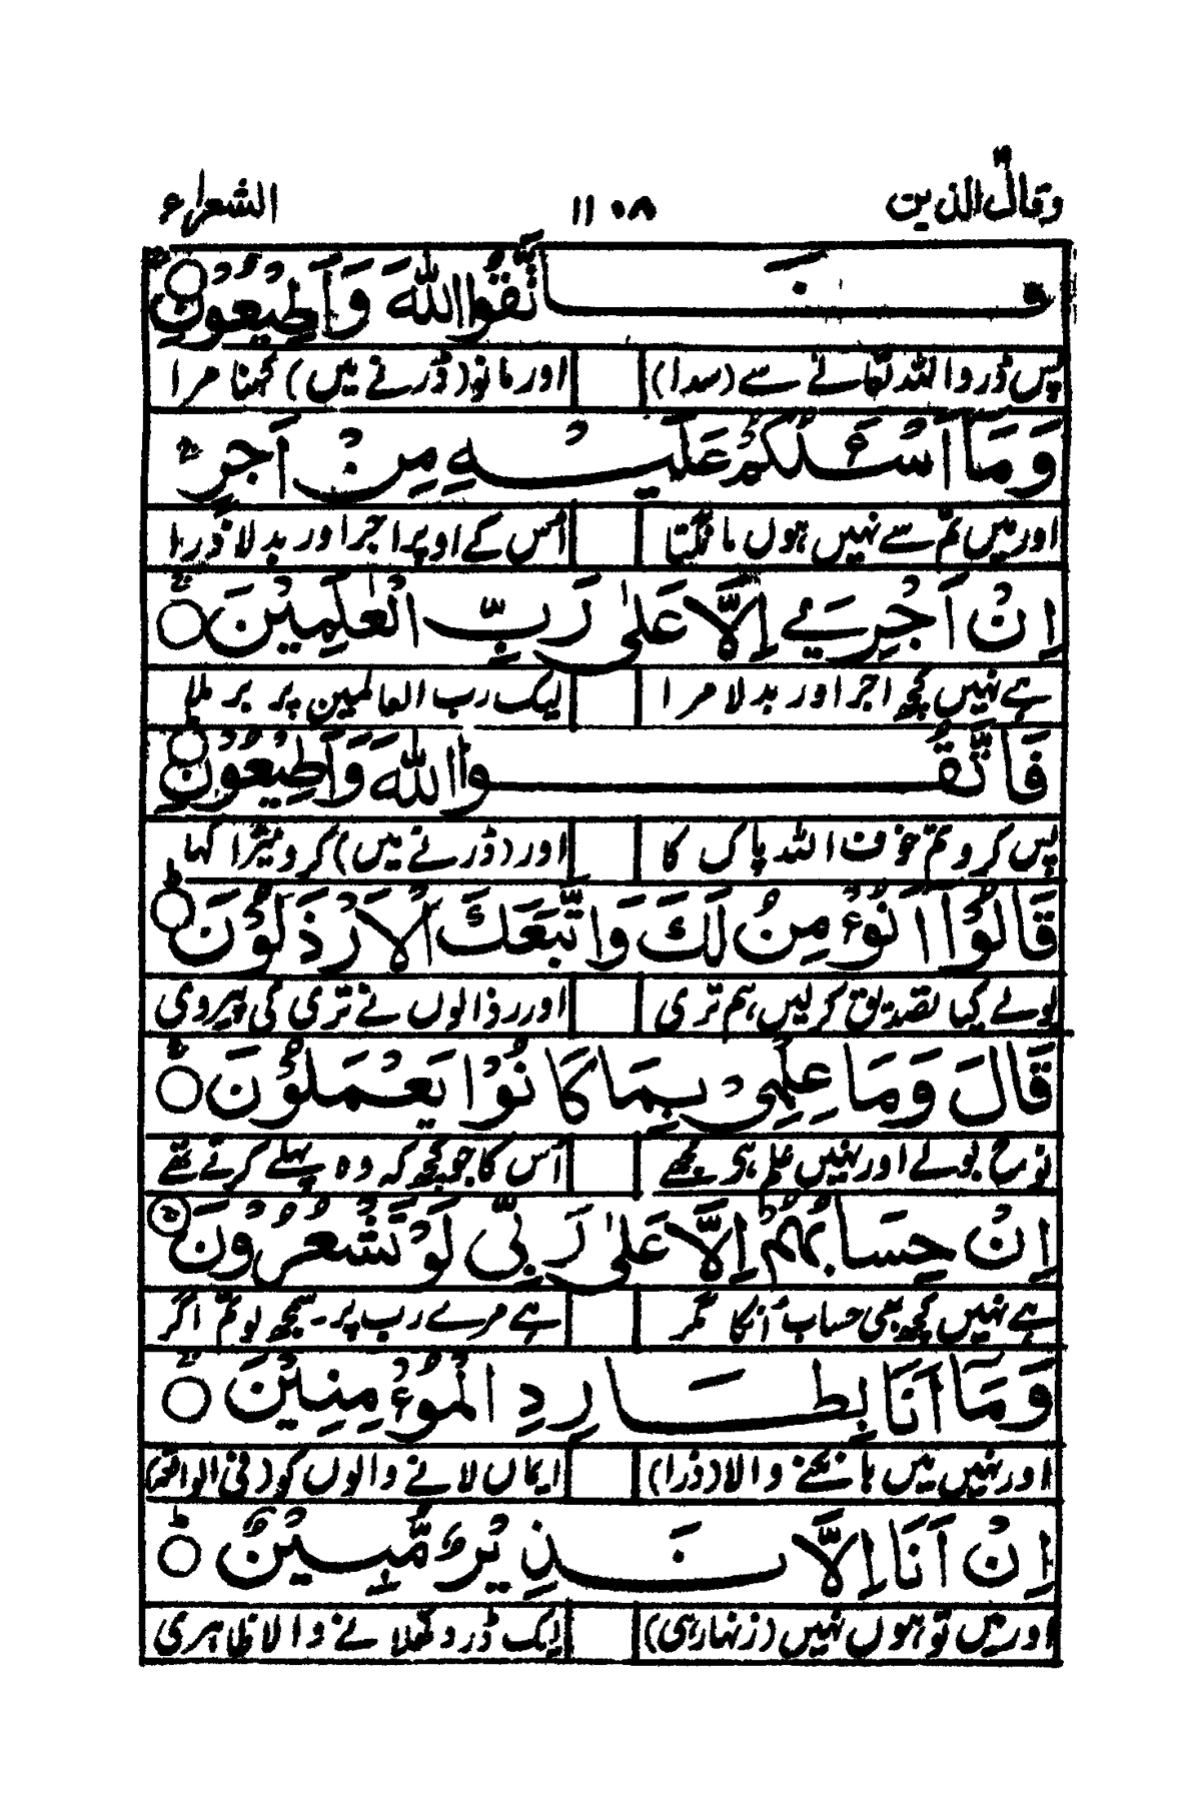 وقال الذین ۱۹ ۱۱۰۸ الشعراء
فَاتَّقُوا اللّٰهَ وَاَطِیْعُوْنِ
پس ڈرو اللہ تعالٰے سے (سدا) اور مانو (ڈرنے میں) کہنا مرا
وَمَاۤ اَسْـَٔلُكُمْ عَلَیْهِ مِنْ اَجْرٍ
اور میں تم سے نہیں ہوں مانگتا اُس کے اوپر اجر اور بدلا ذرا
اِنْ اَجْرِیَ اِلَّا عَلٰی رَبِّ الْعٰلَمِیْنَ
ہے نہیں کچھ اجر اور بدلا مرا لیک رب العالمین پر بر ملا
فَاتَّقُوا اللّٰهَ وَاَطِیْعُوْنِ
پس کرو تم خوف اللہ پاک کا اور (ڈرنے میں) کرو میرا کہا
قَالُوْۤا اَنُؤْمِنُ لَكَ وَاتَّبَعَكَ الْاَرْذَلُوْنَ
بولے کیا تصدیق کرلیں ہم تری اور رذالوں نے تری کی پیروی
قَالَ وَمَا عِلْمِیْ بِمَا كَانُوْا یَعْمَلُوْنَ
نوح بولے اور نہیں علم ہی مجھے اُس کا جو کچھ کہ وہ پہلے کرتے تھے
اِنْ حِسَابُهُمْ اِلَّا عَلٰی رَبِّیْ لَوْ تَشْعُرُوْنَ
ہے نہیں کچھ بھی حساب اُنکا مگر ہے مرے رب پر۔ سمجھ لو تم اگر
وَمَاۤ اَنَا بِطَارِدِ الْمُؤْمِنِیْنَ
اور نہیں میں ہانکنے والا (ذرا) ایماں لانے والوں کو (فی الواقعہ)
اِنْ اَنَا اِلَّا نَذِیْرٌ مُّبِیْنٌ
اور میں تو ہوں نہیں (زنہار ہی) لیک ڈر دکھلانے والا ظاہری